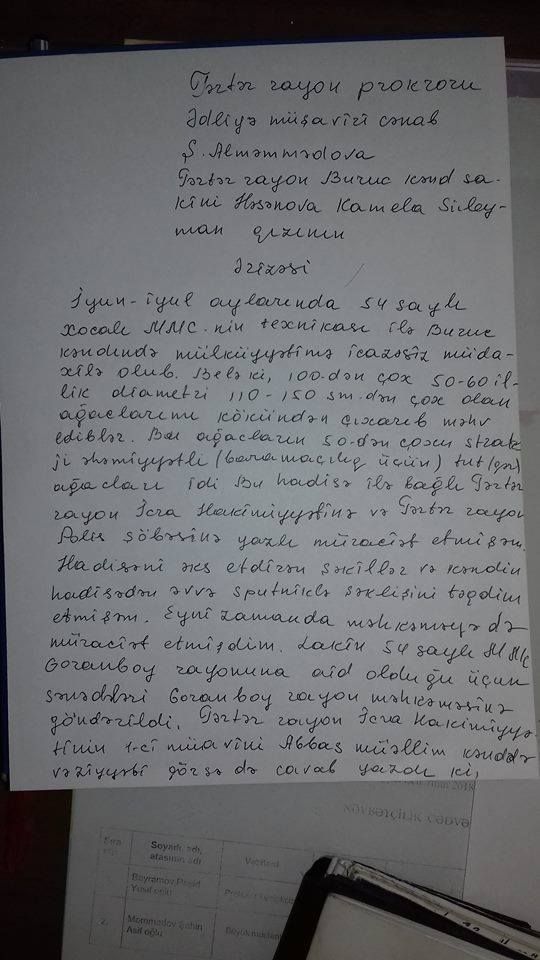 Tərtər rayon prokroru
Ədliyə müşaviri cənab
Ş. Alməmmədova
Tərtər rayon Buruc kənd sa-
kini Həsənova Kamela Süley-
man qızının
Ərizəsi
İyun-iyul aylarında 54 saylı
Xocalı MMC-nin texnikası ilə Buruc
kəndində mülküyyətimə icazəsiz müda-
xilə olub. Belə ki, 100-dən çox 50-60 il-
lik diametri 110-150 sm.dən çox olan
ağaclarımı kökündən çıxarıb məhv
ediblər. Bu ağacların 50-dən çoxu strate
ji əhəmiyyətli (baramaçılıq üçün) tut
ağacları idi Bu hadisə ilə bağlı Tərtər
rayon İcra Hakimiyyətinə və Tərtər rayon
Polis şöbəsinə yazılı müraciət etmişəm.
Hadisəni əks etdirən şəkillər və kəndin
hadisədən əvvə sputniklə şəklişini təqdim
etmişəm. Eyni zamanda məhkəməyə də
müraciət etmişdim. Lakin 54 saylı MMC
Goranboy rayonuna aid olduğu üçün
sənədləri Goranboy rayon məhkəməsinə
göndərildi. Tərtər rayon İcra Hakimiyyə-
tinin 1-ci müavini Abbas müəllim kənddə
vəziyyəti görsə də cavab yazdı ki,
NÖVBƏTÇİLİK CƏDVƏ
Sıra
Soyadı, adı,
atasının adı
Vəzifəsi
Bayramov Rəşid
Yusif oğlu
2.
Məmmədov Şahin
Asif oğlu